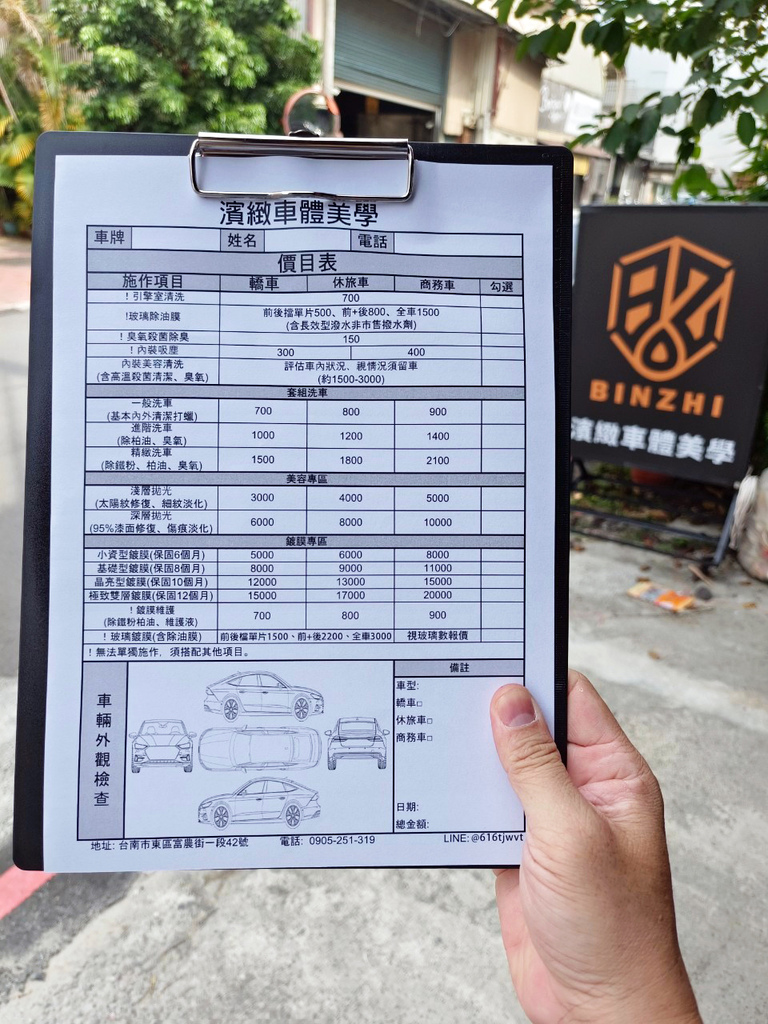 濱緻車體美學
車牌 姓名 電話
價目表
施作項目 轎車 休旅車 商務車 勾選
！引擎室清洗 700
！玻璃除油膜 前後擋單片500、前+後800、全車1500
(含長效型潑水非市售撥水劑)
！臭氧殺菌除臭 150
！內裝吸塵 300 400
內裝美容清洗 評估車內狀況、視情況須留車
(含高溫殺菌清潔、臭氧) (約1500-3000)
套組洗車
一般洗車
(基本內外清潔打蠟) 700 800 900
進階洗車
(除柏油、臭氧) 1000 1200 1400
精緻洗車
(除鐵粉、柏油、臭氧) 1500 1800 2100
美容專區
淺層拋光
(太陽紋修復、細紋淡化) 3000 4000 5000
深層拋光
(95%漆面修復、傷痕淡化) 6000 8000 10000
鍍膜專區
小資型鍍膜(保固6個月) 5000 6000 8000
基礎型鍍膜(保固8個月) 8000 9000 11000
晶亮型鍍膜(保固10個月) 12000 13000 15000
極致雙層鍍膜(保固12個月) 15000 17000 20000
！鍍膜維護
(除鐵粉柏油、維護液) 700 800 900
！玻璃鍍膜(含除油膜) 前後擋單片1500、前+後2200、全車3000 視玻璃數報價
！無法單獨施作，須搭配其他項目。
車輛外觀檢查
備註
車型:
轎車□
休旅車□
商務車□
日期:
總金額:
地址: 台南市東區富農街一段42號 電話: 0905-251-319 LINE: @616tjwvt
BINZHI
濱緻車體美學